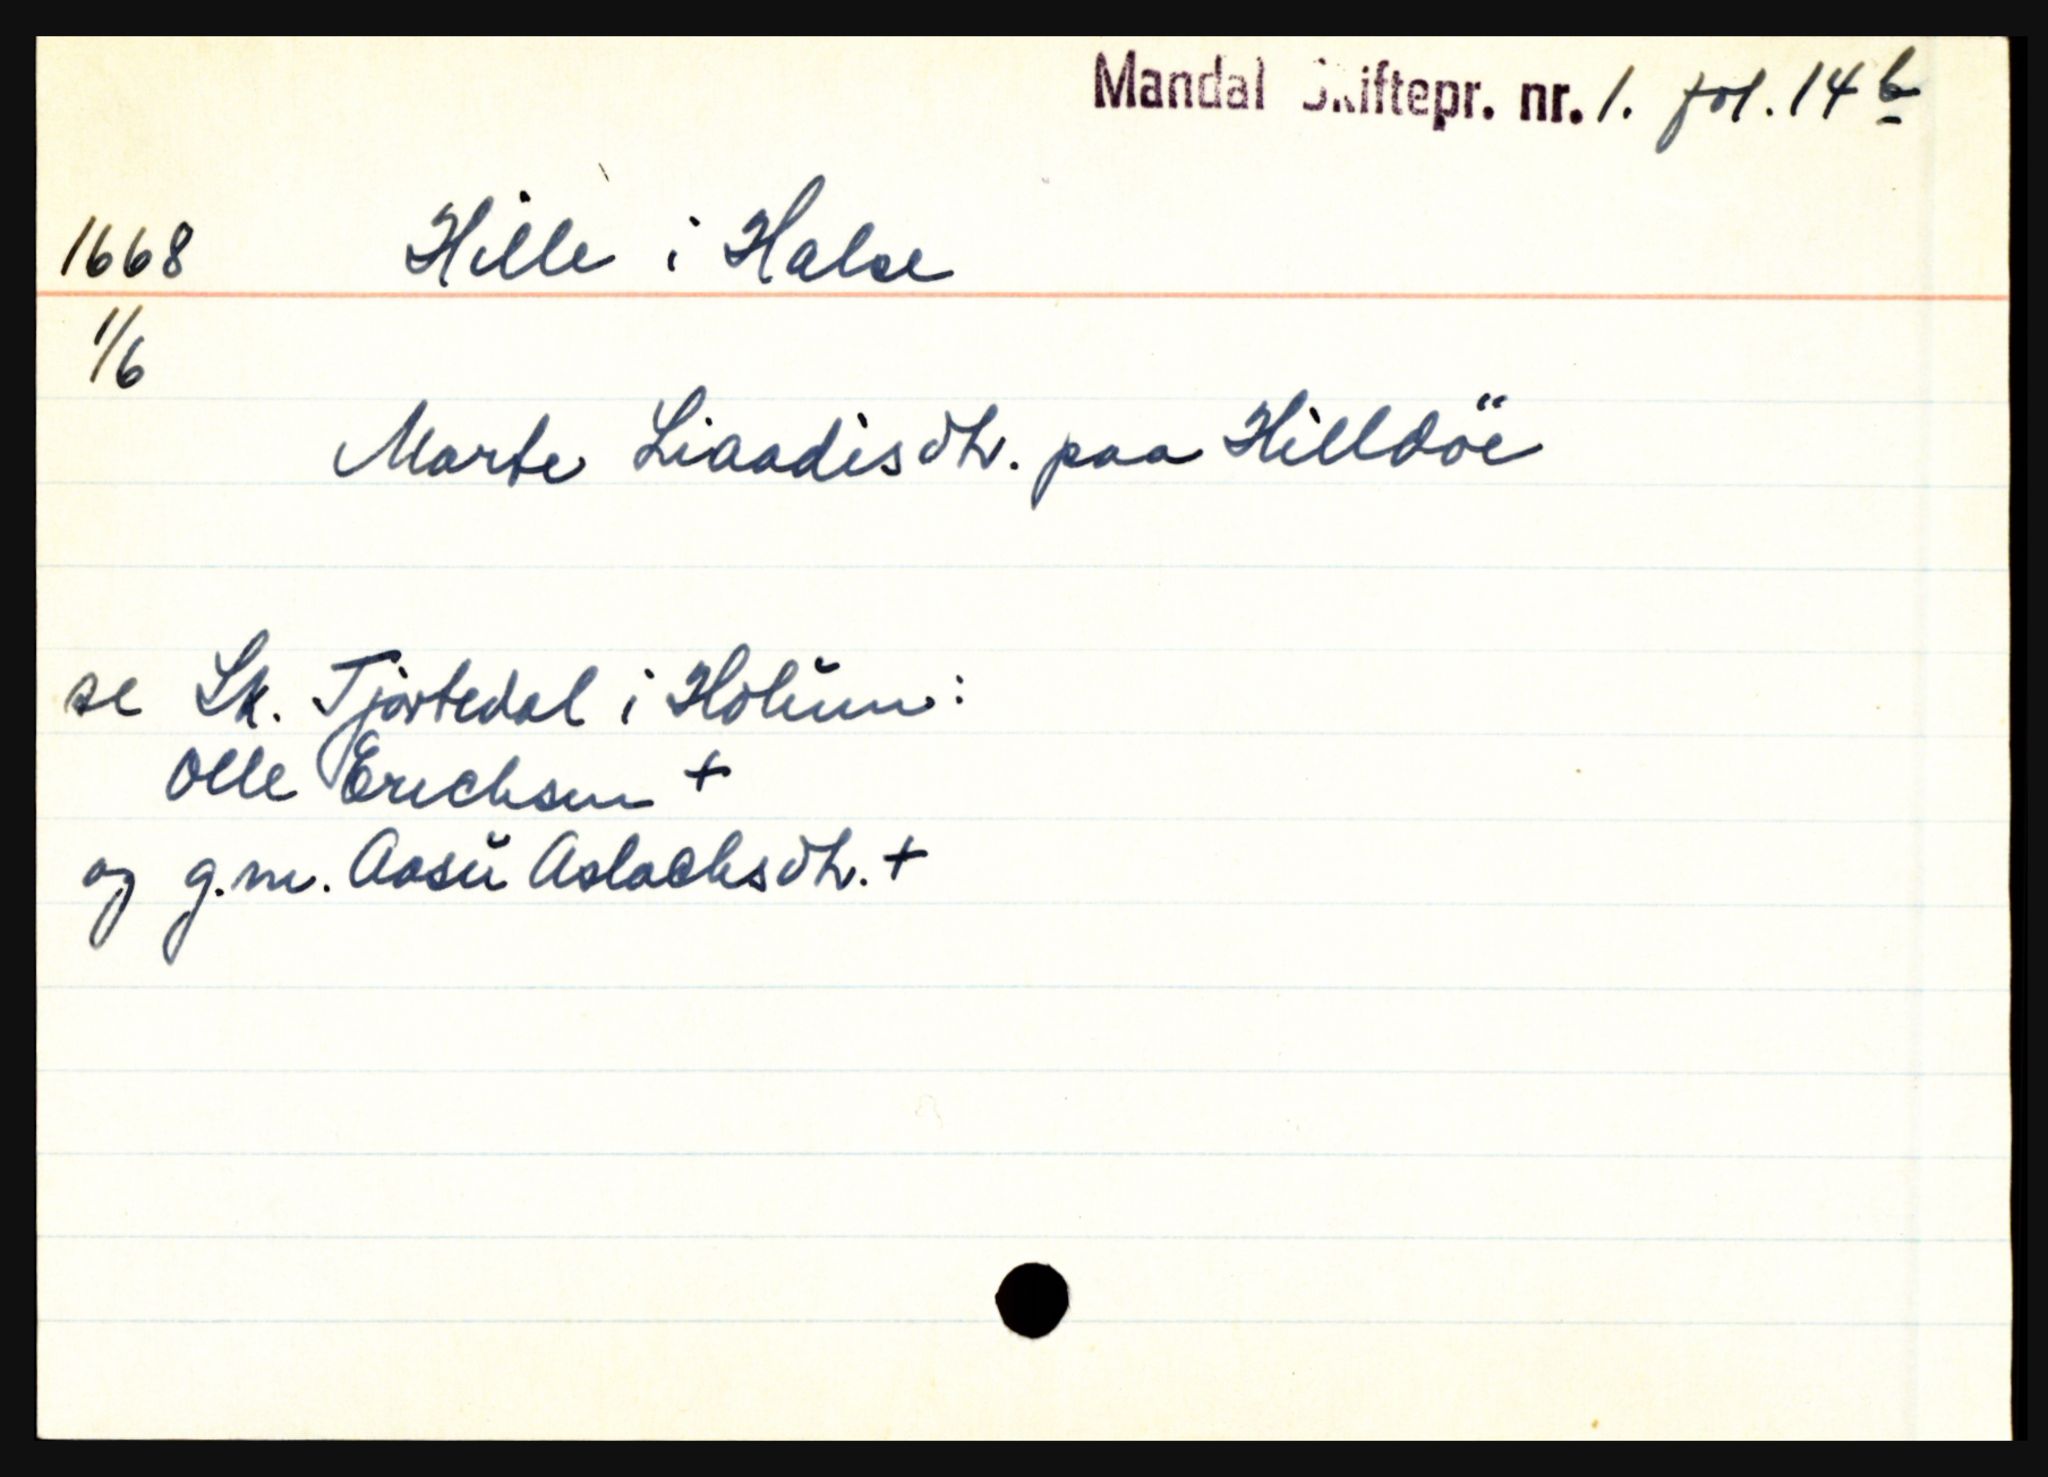 Mandal Skiftepr. nr. 1. fol. 14b
1668 Hille i Halse
1/6
Marte Liaadisdtr. paa Hilldöe
se Sk. Tjortedal i Holum:
Olle Erichsen +
og g.m. Aasu Aslachsdtr. +